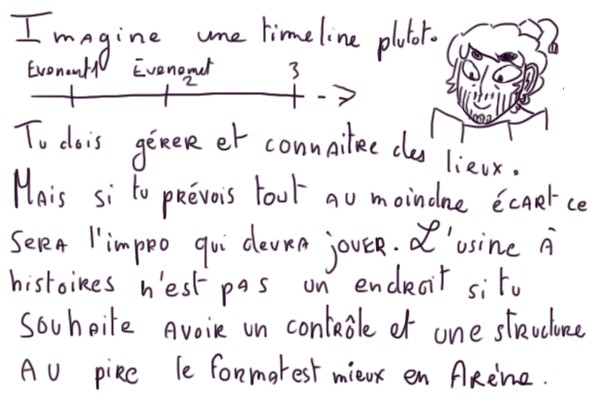 Imagine une timeline plutot.
Evenement1 Evenemet 2 3
Tu dois gérer et connaitre des lieux.
Mais si tu prévois tout au moindre écart ce
sera l'impro qui devra jouer. L'usine à
histoires n'est pas un endroit si tu
souhaite avoir un contrôle et une structure
au pire le format est mieux en Arène.